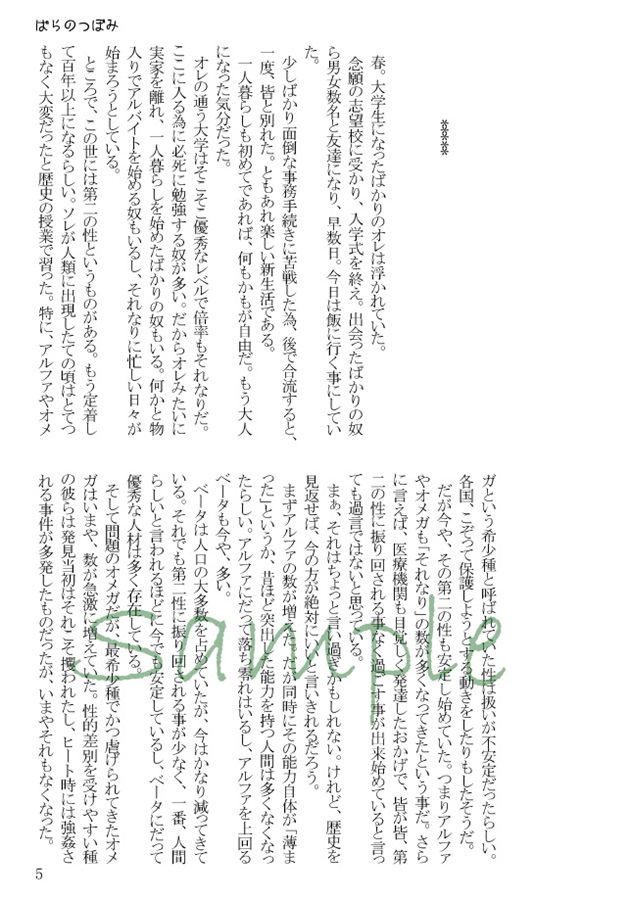 ばらのつぼみ
＊＊＊＊
春。大学生になったばかりのオレは浮かれていた。
念願の志望校に受かり、入学式を終え。出会ったばかりの奴
ら男女数名と友達になり、早数日。今日は飯に行く事にしてい
た。
少しばかり面倒な事務手続きに苦戦した為、後で合流すると、
一度、皆と別れた。ともあれ楽しい新生活である。
一人暮らしも初めてであれば、何もかもが自由だ。もう大人
になった気分だった。
オレの通う大学はそこそこ優秀なレベルで倍率もそれなりだ。
ここに入る為に必死に勉強する奴が多い。だからオレみたいに
実家を離れ、一人暮らしを始めたばかりの奴もいる。何かと物
入りでアルバイトを始める奴もいるし、それなりに忙しい日々が
始まろうとしている。
ところで、この世には第二の性というものがある。もう定着し
て百年以上になるらしい。ソレが人類に出現したての頃はとてつ
もなく大変だったと歴史の授業で習った。特に、アルファやオメ
ガという希少種と呼ばれていた性は扱いが不安定だったらしい。
各国、こぞって保護しようとする動きをしたりもしたそうだ。
だが今や、その第二の性も安定し始めていた。つまりアルファ
やオメガも「それなり」の数が多くなってきたという事だ。さら
に言えば、医療機関も目覚しく発達したおかげで、皆が皆、第
二の性に振り回される事なく過ごす事が出来始めていると言っ
ても過言ではないと思っている。
まぁ、それはちょっと言い過ぎかもしれない。けれど、歴史を
見返せば、今の方が絶対にいいと言いきれるだろう。
まずアルファの数が増えた。だが同時にその能力自体が「薄ま
った」というか、昔ほど突出した能力を持つ人間は多くなくなっ
たらしい。アルファにだって落ち零れはいるし、アルファを上回る
ベータも今や、多い。
ベータは人口の大多数を占めていたが、今はかなり減ってきて
いる。それでも第二性に振り回される事が少なく、一番、人間
らしいと言われるほどに今でも安定しているし、ベータにだって
優秀な人材は多く存在している。
そして問題のオメガだが、最希少種でかつ虐げられてきたオメ
ガはいまや、数が急激に増えていた。性的差別を受けやすい種
の彼らは発見当初はそれこそ攫われたし、ヒート時には強姦さ
れる事件が多発したものだったが、いまやそれもなくなった。
Sample
5